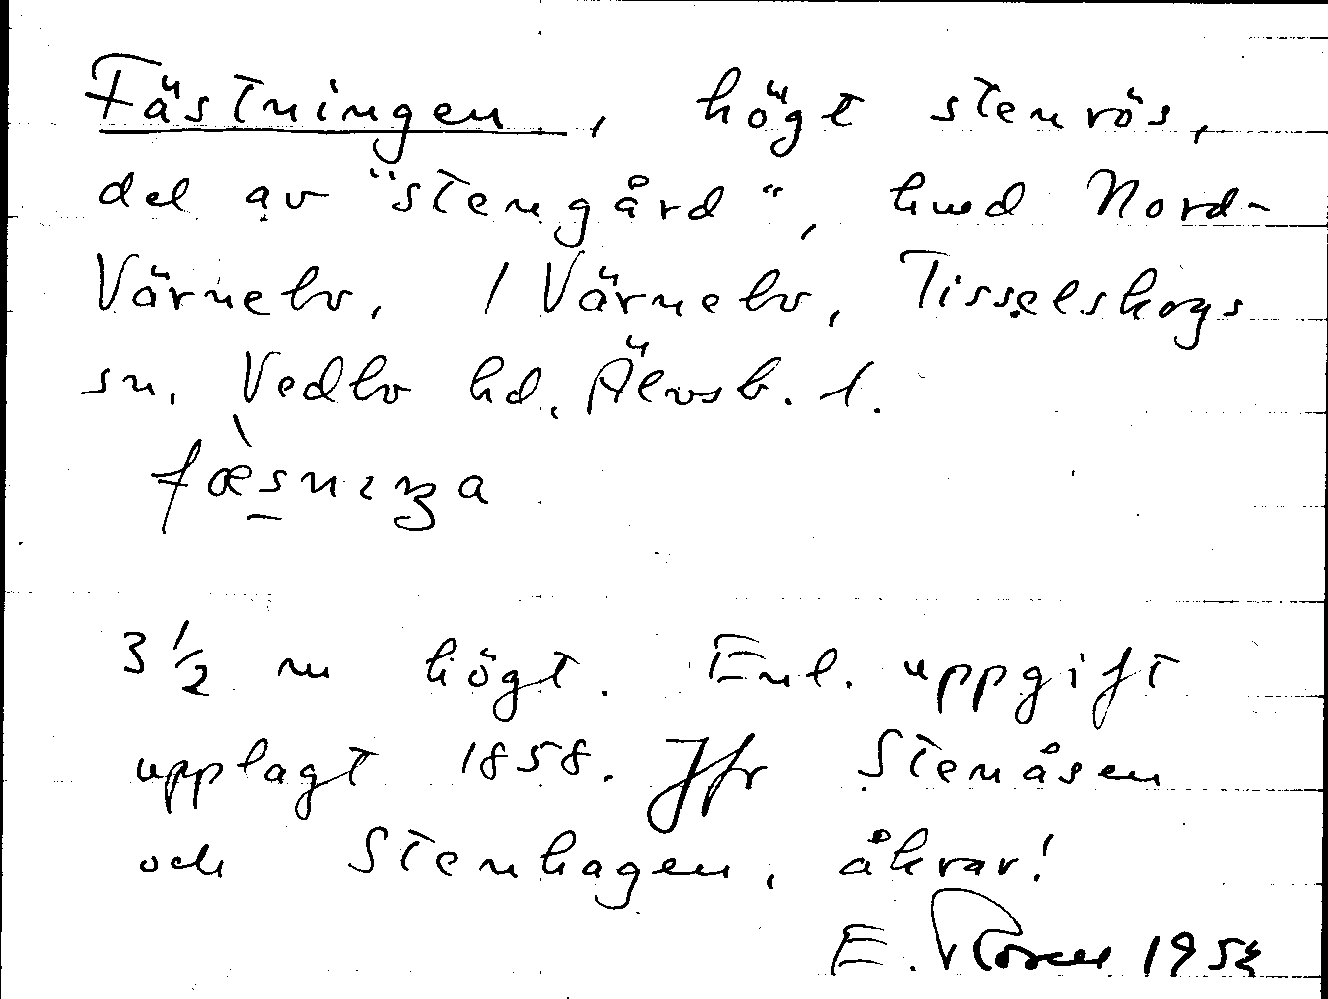 Fästningen, högt stenrös,
del av "stengård", hmd Nord-
Värnebo, 1 Värnebo, Tisselskogs
sn. Vedbo hd. Älvsb. l.
fæ̀snɪŋa
3 1/2 m högt. Enl. uppgift
upplagt 1858. Jfr Stenåsen
och Stenhagen, åkrar!
E.